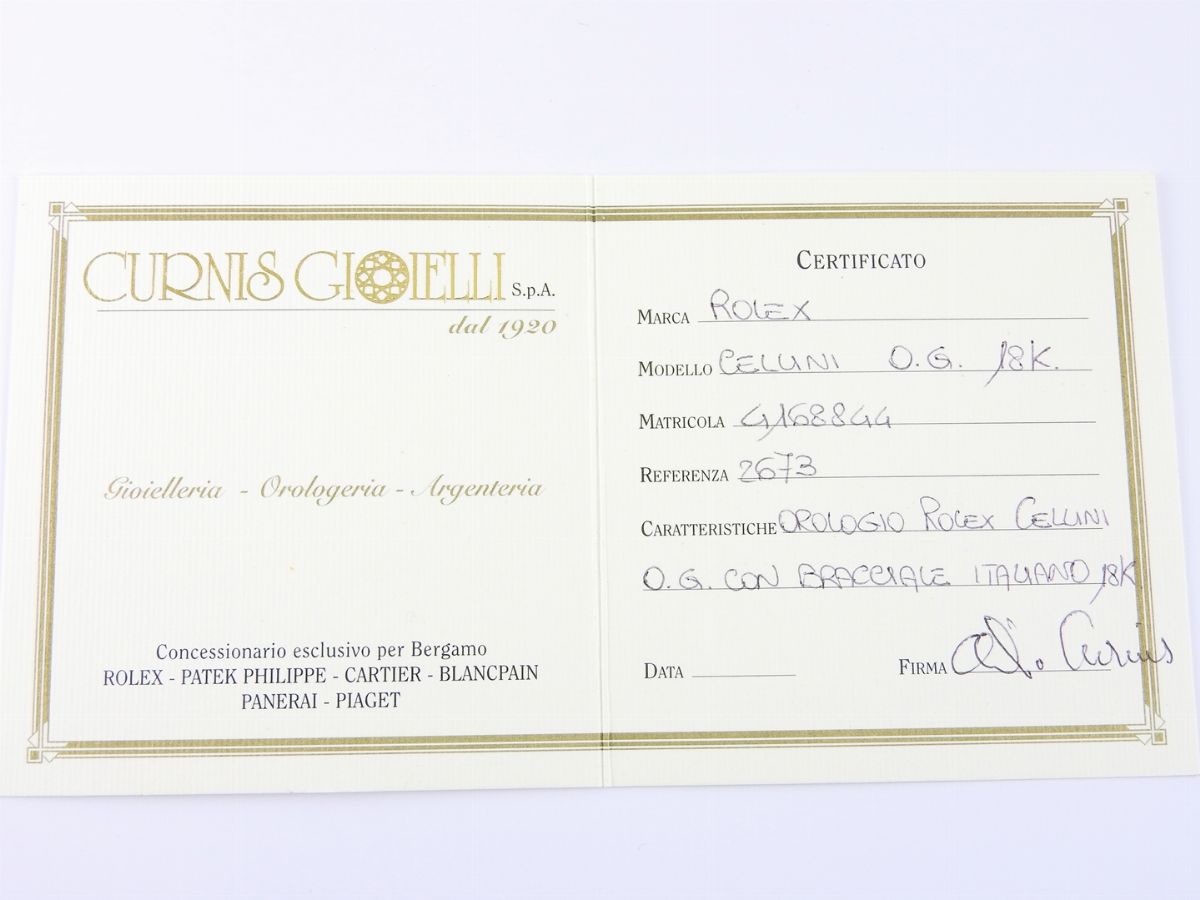 CURNIS GIOIELLI S.p.A.
dal 1920
Gioielleria - Orologeria - Argenteria
Concessionario esclusivo per Bergamo
ROLEX - PATEK PHILIPPE - CARTIER - BLANCPAIN
PANERAI - PIAGET
CERTIFICATO
MARCA ROLEX
MODELLO CELLINI O.G. 18K.
MATRICOLA 4168844
REFERENZA 2673
CARATTERISTICHE OROLOGIO ROLEX CELLINI
O.G. CON BRACCIALE ITALIANO 18K
DATA
FIRMA Curnis